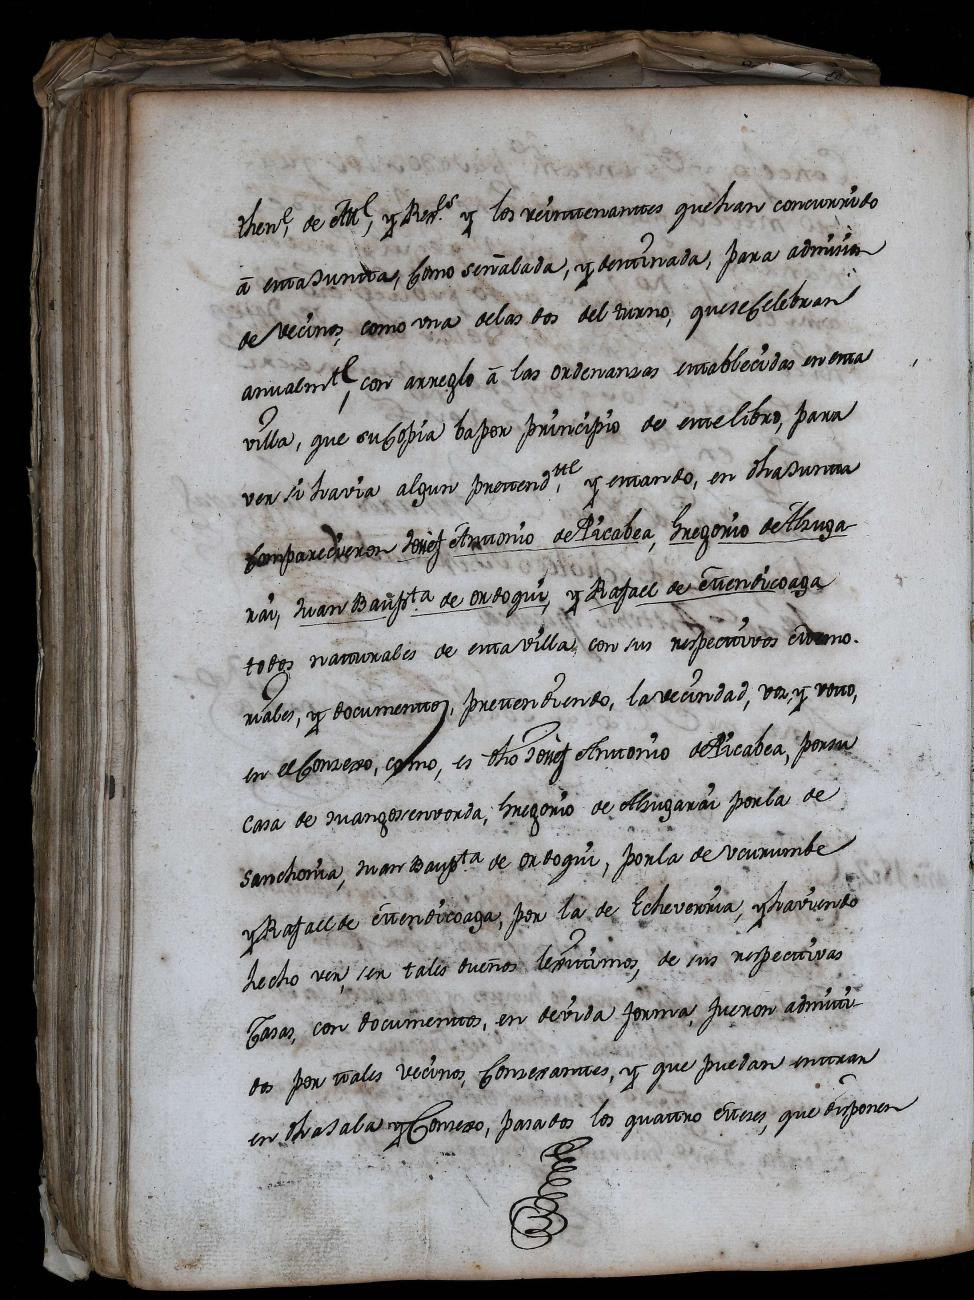 then.e, de Alc.l, y Rex.s y los reintenantes que han concurrido
â esta Junta, como señalada, y destinada, para admision
de Vecinos, como una delas dos del turno, que se Celebran
anualm.te, con arreglo â las ordenanzas establecidas en esta
villa, que su Copia ba por principio de este libro, para
ver si havia algun pretend.te, y estando, en dha Junta
Comparecieron Josef Antonio de Picabea, Gregorio de Alzuga
rai, Juan Baup.ta de Ordoqui, y Rafael de Mendicoaga
todos naturales de esta villa con sus respectivos memo-
riales, y documentos, pretendiendo, la vecindad, voz, y voto,
en el Conzexo, como, es dho Josef Antonio de Picabea, por su
Casa de Juangorenvorda, Gregorio de Alzugarai por la de
Sanchoria, Juan Baup.ta de Ordoqui, por la de Ucurumbe
y Rafael de Mendicoaga, por la de Echeverria, y haviendo
hecho ver, ser tales dueños lexitimos, de sus respectivas
Casas, con documentos, en devida forma, fueron admiti-
dos por tales Vecinos, Conzexantes, y que puedan entrar
en dha Sala y Conzexo, pasados los quatro meses, que disponen